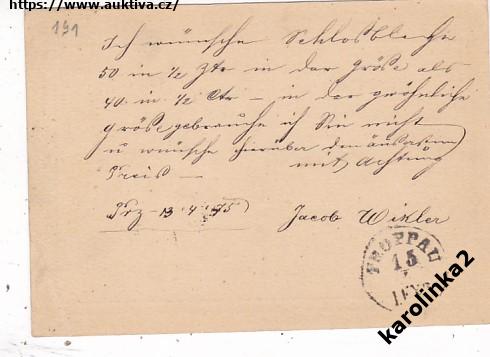 https://www.auktiva.cz/
191
Ich wünsche Schlosbleche
50 in ½ Ztr in der Größe als
40 in ½ Ctr – in der gewöhnliche
größe gebrauche ich Sie nicht
u wünsche hierüber den äusersten
Preis – mit Achtung
Prz – 13/4 75
Jacob Winkler
TROPPAU
15
karolinka2